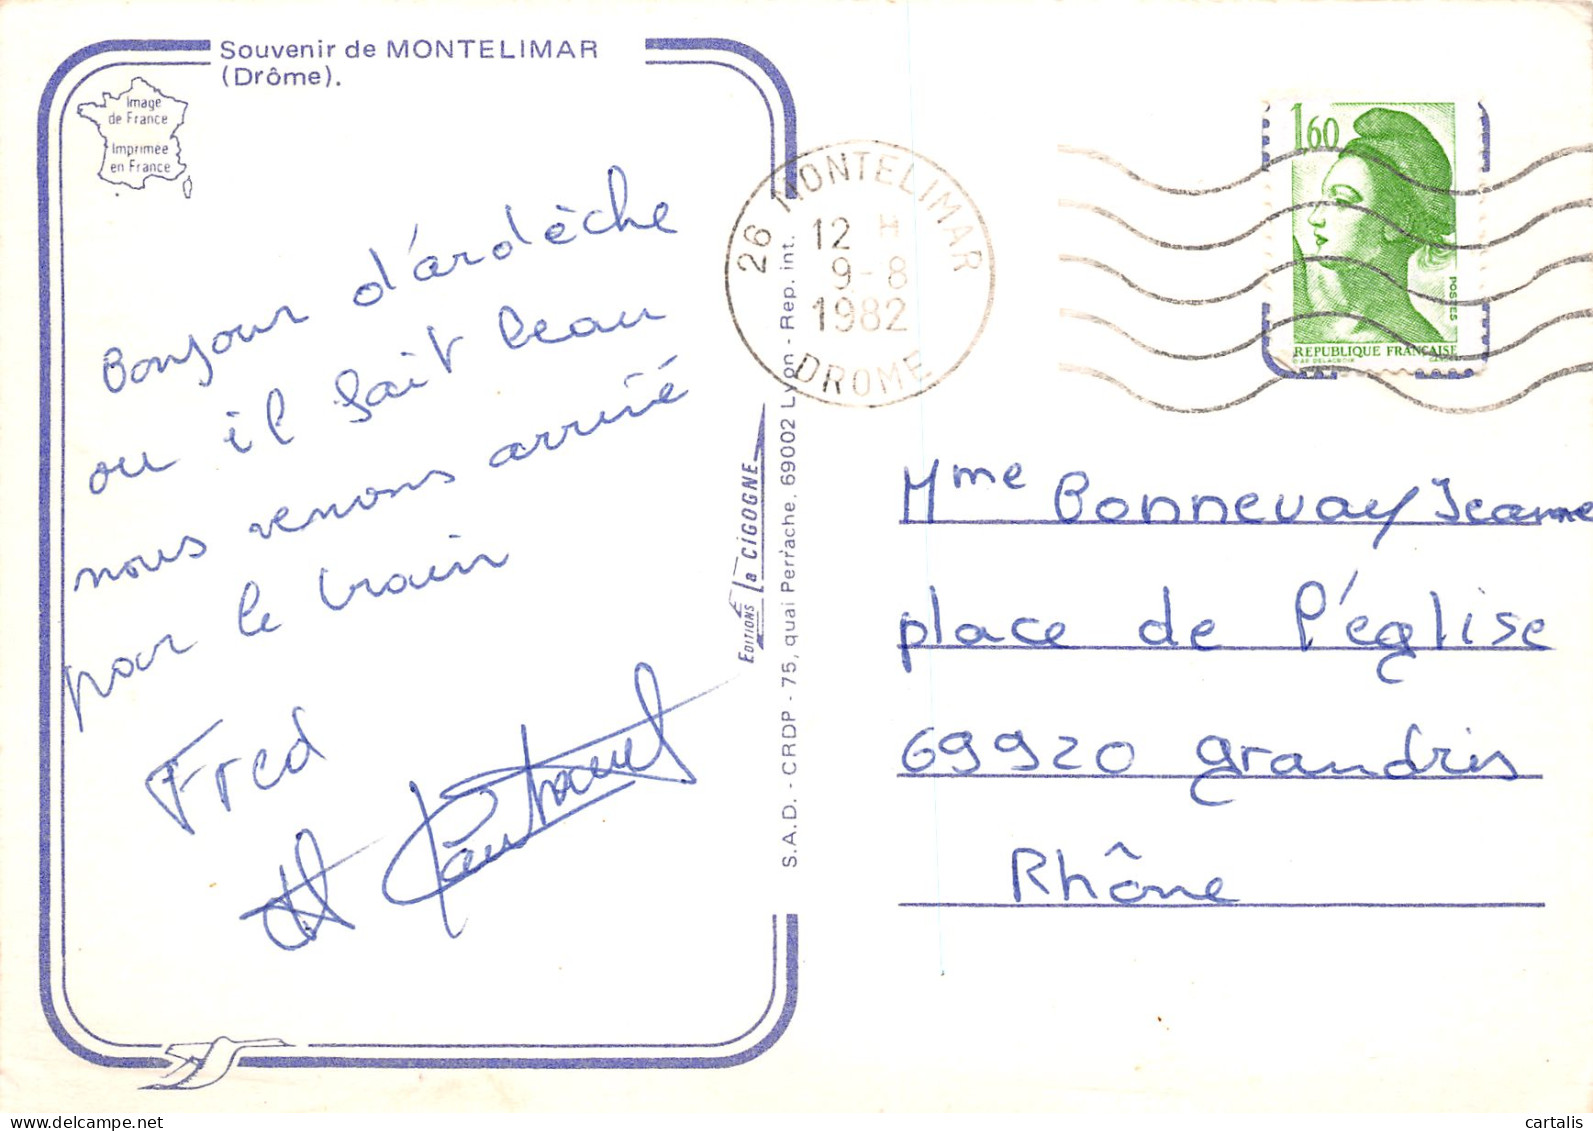 Souvenir de MONTELIMAR
(Drôme).
Image
de France
Imprimée
en France
Bonjour d'ardèche
ou il fait beau
nous venons arrivé
pour le train
Fred
et
26 MONTELIMAR
12 H
9-8
1982
DROME
1,60
POSTES
REPUBLIQUE FRANÇAISE
EDITIONS la CIGOGNE
S.A.D. - CRDP - 75, quai Perrache. 69002 Lyon - Rep. int.
Mme Bonnevay Jeanne
place de l'église
69920 grandris
Rhône
www.cartalis.delcampe.net
cartalis